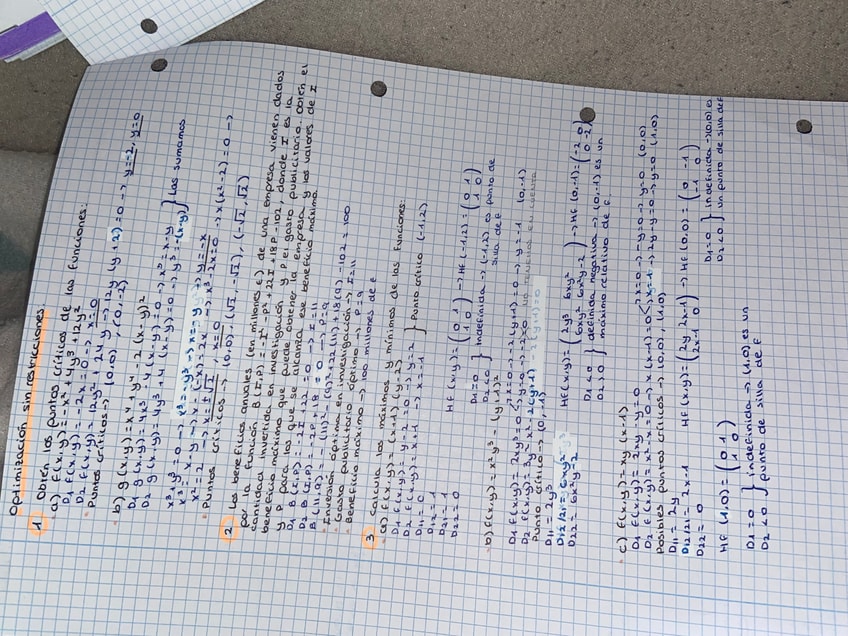 Optimización sin restricciones.
1 Obtén los puntos críticos de las funciones:
a) f(x,y) = -x² + 4y³ + 12y²
D1 f(x,y) = -2x = 0 → x = 0
D2 f(x,y) = 12y² + 24y → 12y (y+2) = 0 → y = -2, y = 0
Puntos críticos → (0,0), (0,-2)
b) g(x,y) = x⁴ + y⁴ - 2(x-y)²
D1 g(x,y) = 4x³ - 4(x-y) = 0 → x³ = x-y
D2 g(x,y) = 4y³ + 4(x-y) = 0 → y³ = -(x-y) } Las sumamos
x³ + y³ = 0 → x³ = -y³ → x = -y → y = -x
x³ = x-y → x³ = x-(-x) = 2x → x³-2x = 0 → x(x²-2) = 0 →
x² = 2 → x = ±√2, x = 0
Puntos críticos → (0,0), (√2, -√2), (-√2, √2)
2 Los beneficios anuales (en millones €) de una empresa vienen dados
por la función B(I,P) = -I² - P² + 22I + 18P - 102, donde I es la
cantidad invertida en investigación y P el gasto publicitario. Obtén el
beneficio máximo que puede obtener la empresa y los valores de I
y P para los que se alcanza ese beneficio máximo.
D1 B(I,P) = -2I + 22 = 0 → I = 11
D2 B(I,P) = -2P + 18 = 0 → P = 9
B(11,9) = -(11)² - (9)² + 22(11) + 18(9) - 102 = 100
· Inversión óptima en investigación → I = 11
· Gasto publicitario óptimo → P = 9
· Beneficio máximo → 100 millones de €
3 Calcula los máximos y mínimos de las funciones:
a) f(x,y) = (x+1)(y-2)
D1 f(x,y) = y-2 = 0 → y = 2
D2 f(x,y) = x+1 → x = -1 } Punto crítico (-1,2)
D11 = 0
D12 = 1
D21 = 1
D22 = 0
Hf (x,y) = (0 1 / 1 0) → Hf (-1,2) = (0 1 / 1 0)
D1 = 0
D2 < 0 } Indefinida → (-1,2) es punto de
silla de f
b) f(x,y) = x²y³ - (y+1)²
D1 f(x,y) = 2xy³ = 0 < x = 0 → -2(y+1) = 0 → y = -1 (0,-1)
D2 f(x,y) = 3y²x² - 2(y+1)
Punto crítico → (0,-1)
D11 = 2y³
D12/21 = 6xy²
D22 = 6x²y - 2
Hf (x,y) = (2y³ 6xy² / 6xy² 6x²y-2) → Hf (0,-1) = (-2 0 / 0 -2)
D1 < 0
D2 > 0 } definida negativa → (0,-1) es un
máximo relativo de f.
c) f(x,y) = xy(x-1)
D1 f(x,y) = 2xy - y = 0
D2 f(x,y) = x²-x = 0 → x(x-1) = 0 < x = 0 → -y = 0 → y = 0 (0,0)
x = 1 → 2y-y = 0 → y = 0 (1,0)
Posibles puntos críticos → (0,0), (1,0)
D11 = 2y
D12/21 = 2x-1
D22 = 0
Hf (x,y) = (2y 2x-1 / 2x-1 0) → Hf (0,0) = (0 -1 / -1 0)
D1 = 0
D2 < 0 } indefinida → (0,0) es
un punto de silla de f
Hf (1,0) = (0 1 / 1 0)
D1 = 0
D2 < 0 } indefinida → (1,0) es un
punto de silla de f